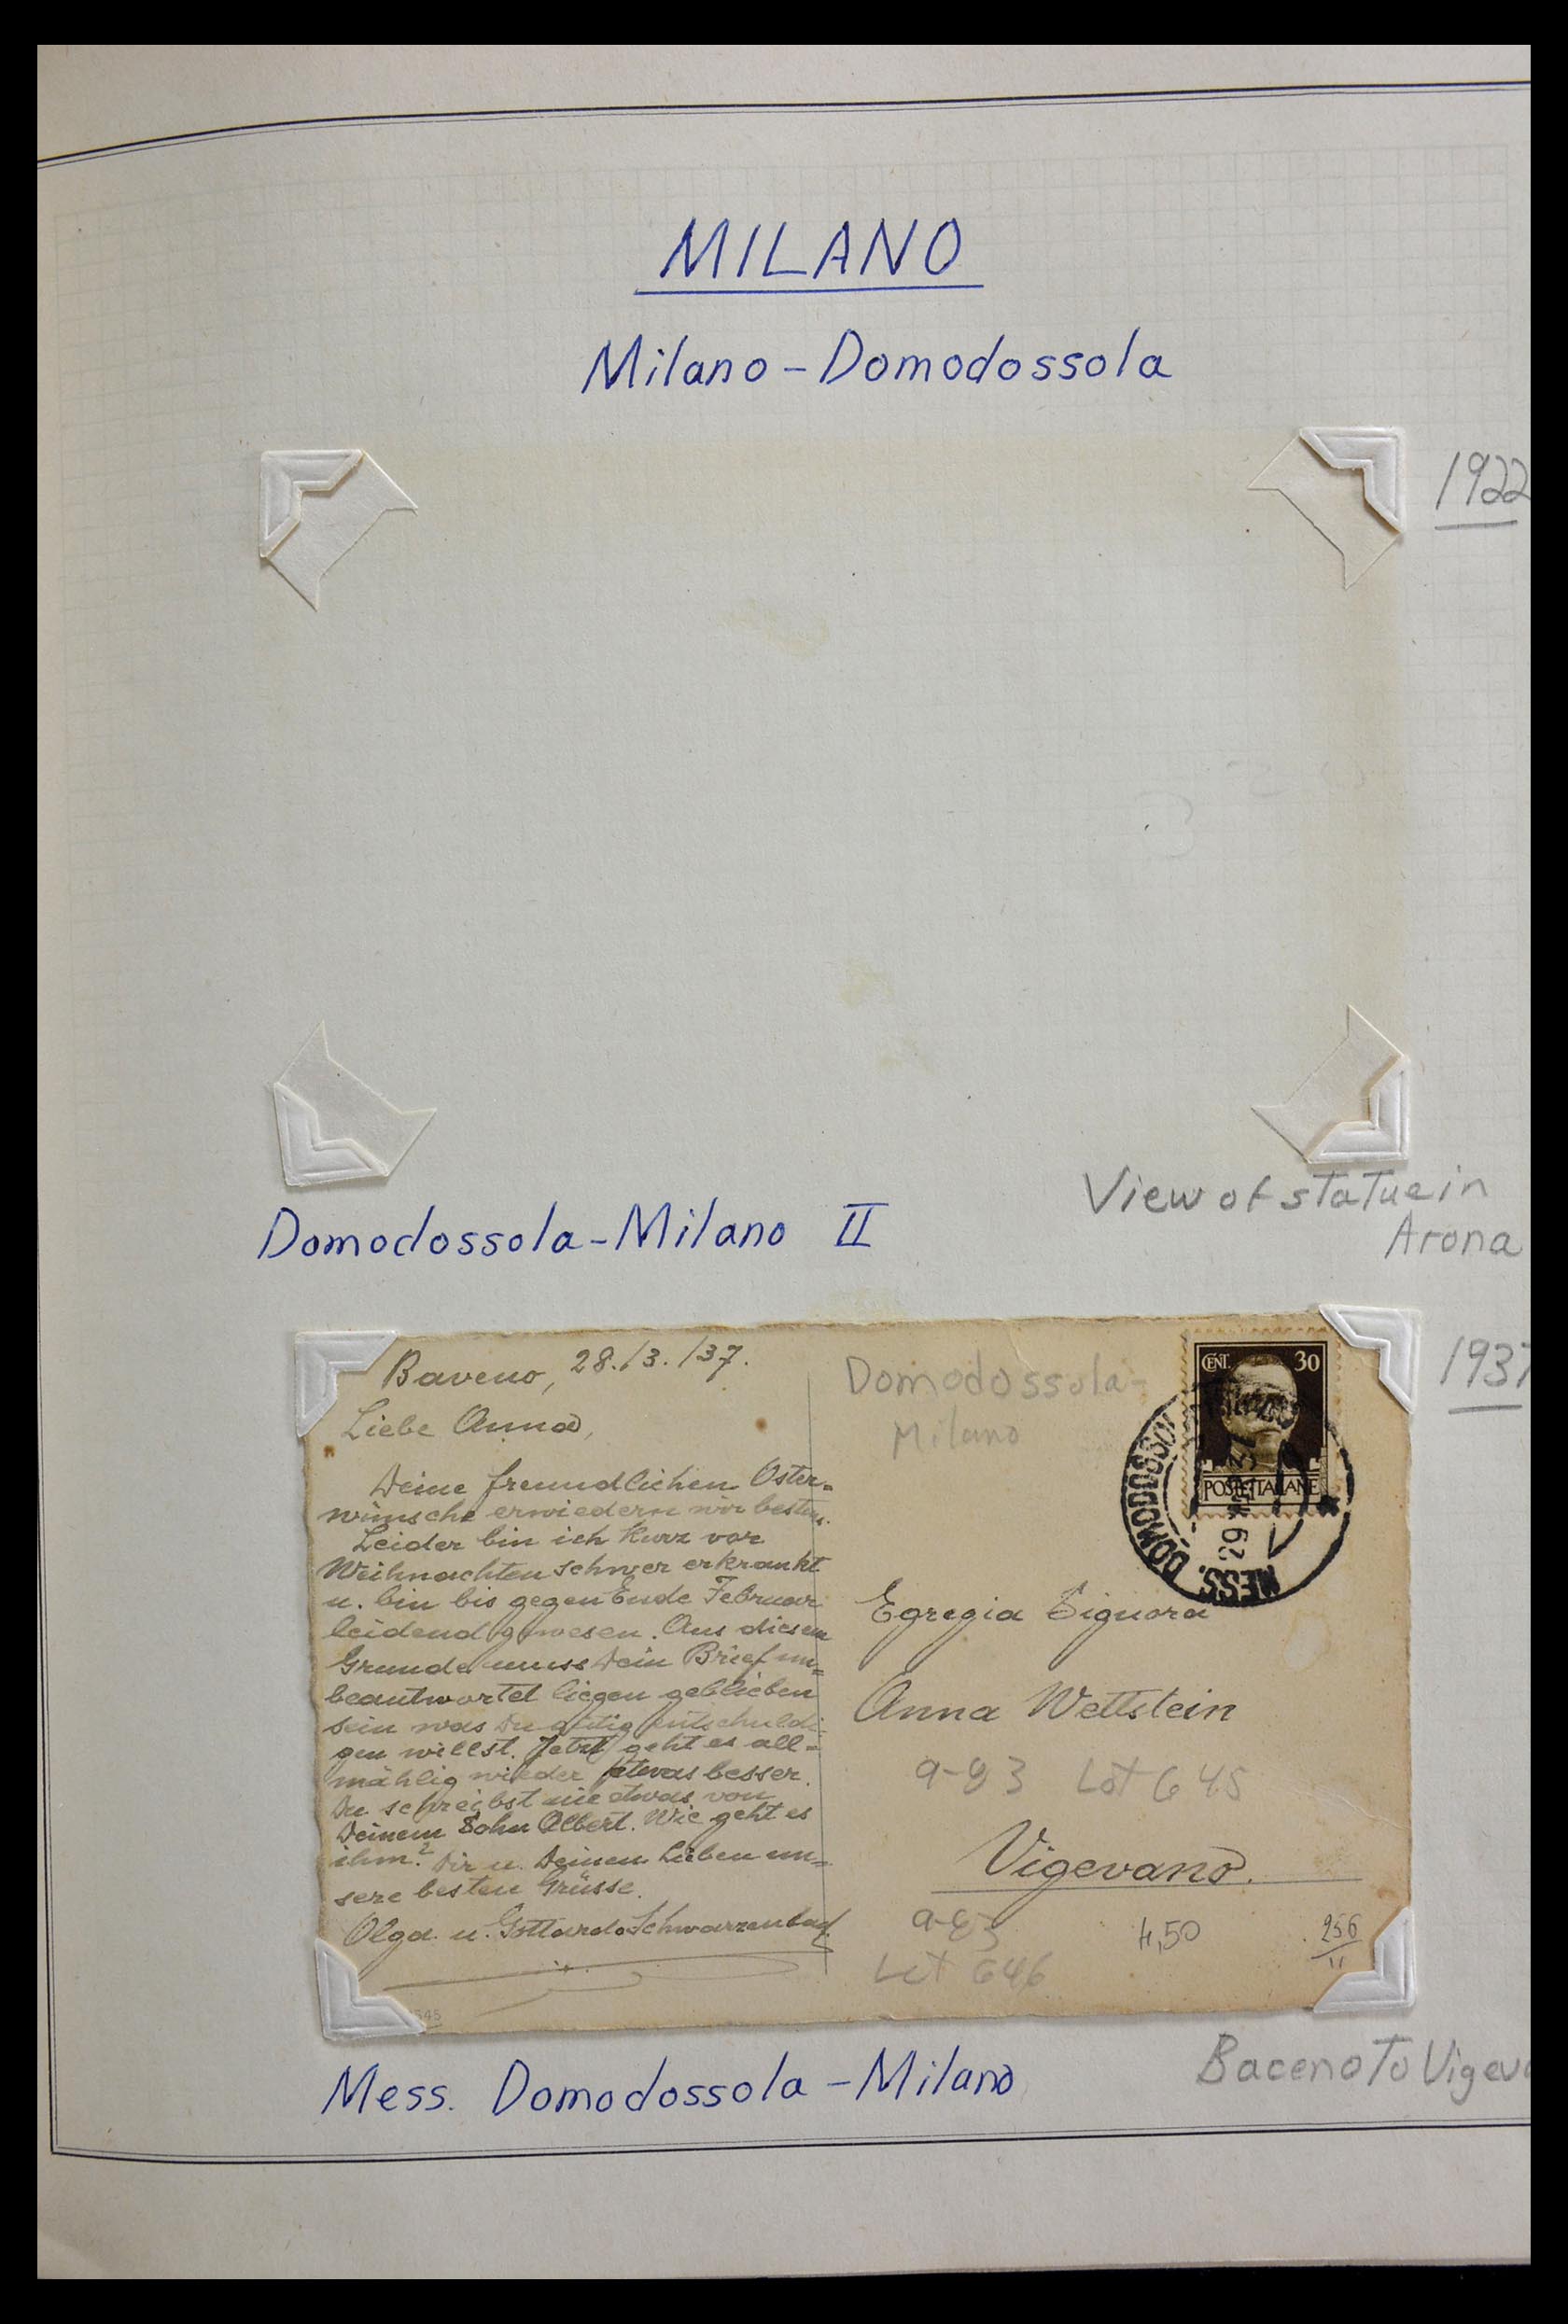 MILANO
Milano - Domodossola
1922
Domodossola - Milano II
View of statue in
Arona
1937
Baveno, 28./3./37.
Liebe Anna,
Deine freundlichen Oster-
wünsche erwiedern wir bestens.
Leider bin ich kurz vor
Weihnachten schwer erkrankt
u. bin bis gegen Ende Februar
leidend gewesen. Aus diesem
Grunde muss Dein Brief un=
beantwortet liegen geblieben
sein was Du gütig entschuldi-
gen willst. Jetzt geht es all=
mählig wieder etwas besser.
Du schreibst nie etwas von
Deinem Sohn Albert. Wie geht es
ihm? Dir u. Deinen Lieben un=
sere besten Grüsse.
Olga u. Gottardo Schwarzenbach
545
Domodossola-
Milano
CENT. 30
POSTE ITALIANE
MESS. DOMODOSSOLA
29
Egregia Signora
Anna Wettstein
9-93 Lot 645
Vigevano.
Lot 646
4,50
256
Mess. Domodossola - Milano
Baceno To Vigev